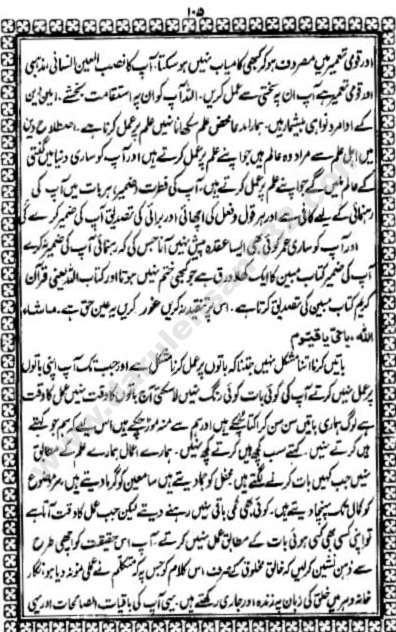 ۱۰۵
اور قومی تعمیر میں مصروف ہو کر کبھی کامیاب نہیں ہو سکتا، آپ کا نصب العین انسانی مذہبی
اور قومی تعمیر ہے آپ ان پہ سختی سے عمل کریں۔ اللہ آپ کو ان پہ استقامت بخشے۔ امین دین
کے اوامر و نواہی بیشمار ہیں۔ ہمارا مدعا محض علم سکھانا نہیں علم پر عمل کرنا ہے۔ اصطلاح دین
میں اہل علم سے مراد وہ عالم ہیں جو اپنے علم پر عمل کرتے ہیں اور آپ کو ساری دنیا میں گنتی
کے عالم ملیں گے جو اپنے علم پر عمل کرتے ہیں۔ آپ کی فطرت (ضمیر) ہر بات میں آپ کی
رہنمائی کے لیے کافی ہے اور ہر قول و فعل کی اچھائی اور برائی کی تصدیق آپ کی ضمیر کرے گی
اور آپ کو ساری عمر کوئی بھی ایسا عقدہ پیش نہیں آنا جس کی کہ رہنمائی آپ کی ضمیر نہ کرے
آپ کی ضمیر کتاب مبین کا ایک کھلا ورق ہے جو کبھی ختم نہیں ہوتا اور کتاب اللہ یعنی قرآن
کریم کتاب مبین کی تصدیق کرتا ہے۔ اس پر تنقید نہ کریں غور کریں یہ عین حق ہے۔ ماشاء
اللہ، یا حی یا قیوم
باتیں کرنا اتنا مشکل نہیں جتنا کہ باتوں پر عمل کرنا مشکل ہے اور جب تک آپ اپنی باتوں
پر عمل نہیں کرتے آپ کی کوئی بات کوئی رنگ نہیں لا سکتی آج باتوں کا وقت نہیں عمل کا وقت
ہے لوگ ہماری باتیں سن سن کر اکتا چکے ہیں اور ہم سے منہ موڑ چکے ہیں اس لیے کہ ہم جو کہتے
ہیں کرتے نہیں۔ کہتے سب کچھ ہیں کرتے کچھ نہیں۔ ہمارے اعمال ہمارے علم کے مطابق
نہیں جب کہیں بات کرنے لگتے ہیں محفل کو جما دیتے ہیں سامعین کو گرما دیتے ہیں، ہر موضوع
کو کمال تک پہنچا دیتے ہیں۔ کوئی بھی کمی باقی نہیں رہنے دیتے لیکن جب عمل کا وقت آتا ہے
تو اپنی کسی بھی کہی ہوئی بات کے مطابق عمل نہیں کرتے۔ آپ اس حقیقت کو اچھی طرح
سے ذہن نشین کر لیں کہ خالق مخلوق کے صرف اس کلام کو جس پہ کہ متکلم نے عملی نمونہ دیا ہو نگار
خانہ دہر میں خلق کی زبان پہ زندہ اور جاری رکھتے ہیں۔ یہی آپ کی باقیات الصالحات اور یہی